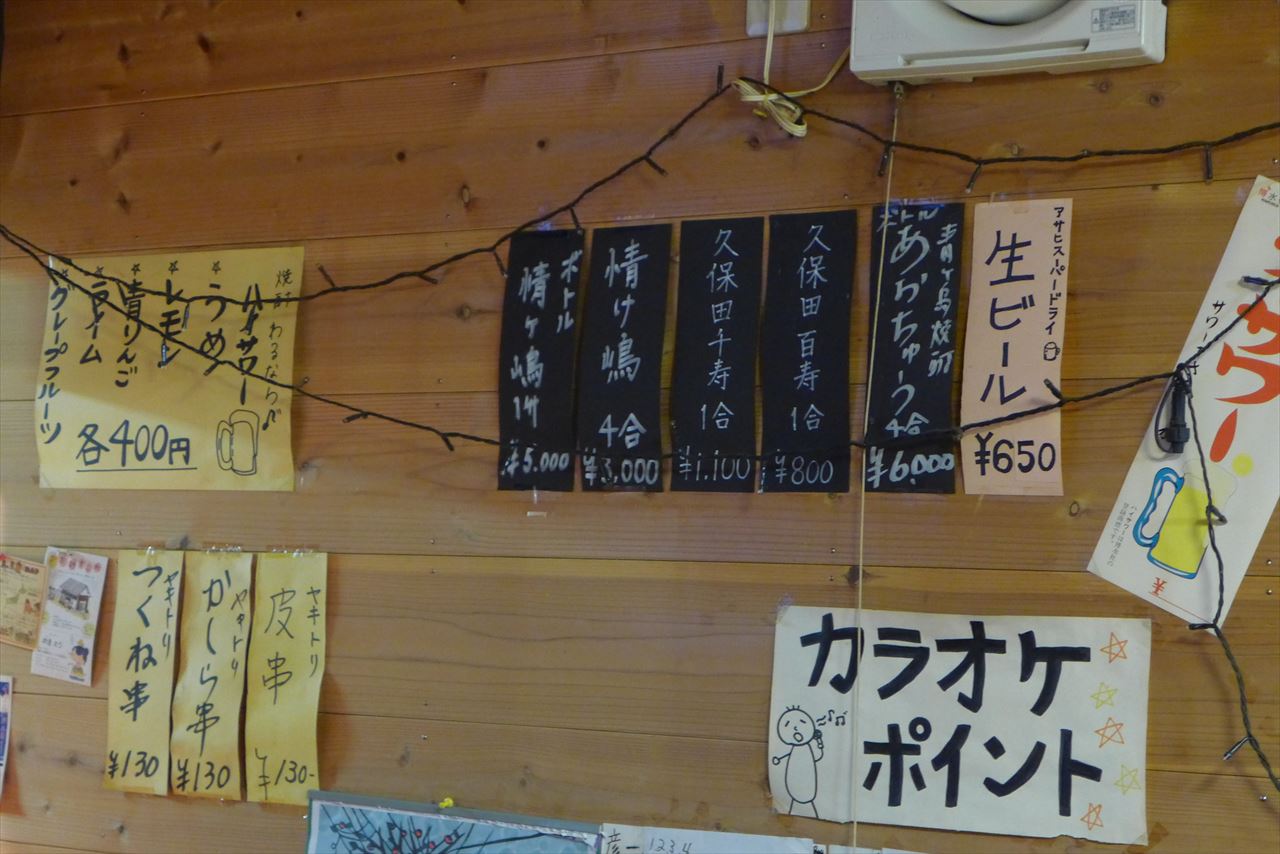 焼酎 わるなら♪
ハイサワー
☆うめ
☆レモン
☆青りんご
☆ライム
☆グレープフルーツ
各400円
ボトル
情ヶ嶋 1升
¥5.000
情け嶋 4合
¥3,000
久保田千寿 1合
¥1.100
久保田百寿 1合
¥800
青ヶ島焼酎
ボトル
あおちゅう 4合
¥6.000
アサヒスーパードライ
生ビール
¥650
サワー
ヤキトリ
つくね串
¥130
ヤキトリ
かしら串
¥130
ヤキトリ
皮串
¥130-
カラオケ
ポイント
彦一 1234